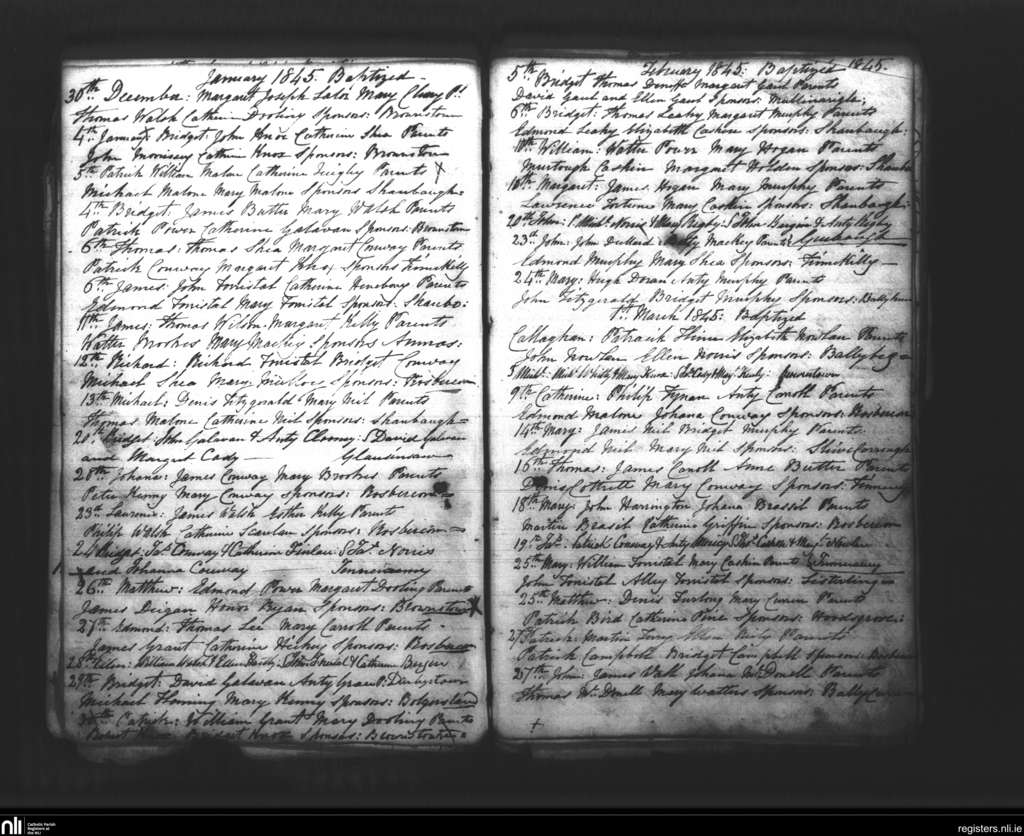 January 1845: Baptized
30th December: Margaret Joseph Lalor Mary Cleary Pts
Thomas Walsh Cathrin Dooling Sponsors: Brownstown
4th January Bridget: John Knox Catherine Shea Parents
John Morrissey Cathrin Knox Sponsors: Brownstown
5th Patrick William Malone Catherine Parents
Michael Malone Mary Malone Sponsors Shanbaugh
4th Bridget: James Butler Mary Walsh Parents
Patrick Power Catherine Galavan Sponsors: Brownstown
6th Thomas: Thomas Shea Margaret Conway Parents
Patrick Conway Margaret Knox Sponsors Finnikelly
6th James: John Forristal Catherine Henebery Parents
Edmond Forristal Mary Forristal Sponsors: Shanbo:
11th James: Thomas Wilson Margaret Kelly Parents
Walter Brookes Mary Mackey Sponsors Annas:
12th Richard: Richard Forristal Bridget Conway
Michael Shea Mary Sponsors: Rosbercon
13th Michael: Denis Fitzgerald Mary Neil Parents
Thomas Malone Catherine Neil Sponsors: Shanbaugh
20th Bridget: John Galavan & Anty Clooney: S David Galavan
and Margret Cady Glansinsaw
28th Johana: James Conway Mary Brookes Parents
Peter Kenny Mary Conway Sponsors: Rosbercon
23rd Laurence: James Welsh Esther Kelly Parents
Philip Walsh Catherine Scanlan Sponsors: Rosbercon
24 Bridget: Jas. Conway & Catherine S Jas. Norris
and Johanna Conway
26th Matthew: Edmond Power Margaret Dooling Parents
James Duigan Honor Ryan Sponsors: Brownstown X
27th Edmond: Thomas Lee Mary Carroll Parents
James Grant Catherine Hickey Sponsors: Rosbercon
28th Ellen: William Walsh & Ellen & Catherine Bergin
29th Bridget: David Galavan Anty Grace P: Darbystown
Michael Fleming Mary Kenny Sponsors: Bolgersland
30th Patrick: William Grant Mary Dooling Parents
Robert Knox Bridget Knox Sponsors: Brownstown
February 1845: Baptized 1845.
5th Bridget Thomas Margaret Gaul Parents
David Gaul and Ellen Gaul Sponsors: Mullinarigle:
6th Bridget: Thomas Leahy Margaret Murphy Parents
Edmond Leahy Elizabeth Caskin Sponsors: Shanbaugh:
10th William: Walter Power Mary Hogan Parents
Murtough Caskin Margaret Holden Sponsors: Shanbo
10th Margaret: James Hogan Mary Murphy Parents
Lawrence Fortune Mary Caskin Sponsors: Shanbaugh
20th John: Michl. Norris & Mary Rigby: S John Bergin & Anty Rigby
23rd John: John Dillard Betsy Mackey Parents
Edmond Murphy Mary Shea Sponsors: Finnikilly
24th Mary: Hugh Doran Anty Murphy Parents
John Fitzgerald Bridget Murphy Sponsors:
1st March 1845: Baptized
Callaghan: Patrick Flinn Elizabeth Nowlan Parents
John Nowlan Ellen Norris Sponsors: Ballybeg
5 Michl: Michl & Mary Jas. Cody & Mary Kiely
9th Catherine: Philip Fynan Anty Carroll Parents
Edmond Malone Johana Conway Sponsors: Rosbercon
14th Mary: James Neil Bridget Murphy Parents
Edmond Neil Mary Neil Sponsors:
16th Thomas: James Carroll Anne Butler Parents
Denis Cottrell Mary Conway Sponsors:
18th Mary: John Harrington Johana Brassil Parents
Martin Brasil Catherine Griffin Sponsors: Rosbercon
19th Jas. Patrick Conway & Anty
25th Mary: William Forristal Mary Caskin Parents
John Forristal Alley Forristal Sponsors: Listerlingin
25th Matthew: Denis Furlong Mary Parents
Patrick Bird Catherine Sponsors: Woodsgrove:
27 Patrick: Martin Ellen Parents
Patrick Campbell Bridget Campbell Sponsors:
27th John: James Wall Johana McDonell Parents
Thomas McDonell Mary Watters Sponsors:
nli
Catholic Parish
Registers at
the NLI
registers.nli.ie